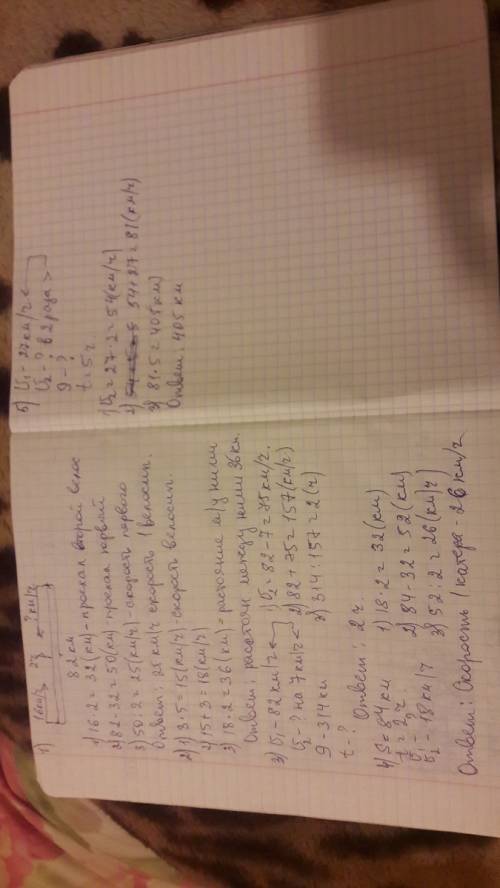 1) 16км/ч 2ч ?км/ч
82 км
1) 16·2=32(км)-проехал второй велос
2) 82-32=50(км)-проехал первый
3) 50:2=25(км/ч)-скорость первого
Ответ: 25 км/ч скорость 1 велосип.
2) 1) 3·5=15(км/ч)-скорость велосип.
2) 15+3=18(км/ч)
3) 18·2=36(км)-растояние м/у ними
Ответ: расстоян между ними 36 км.
3) v1-82км/ч
v2-? на 7км/ч<
S-314 км
t-?
1) v2=82-7=75км/ч.
2) 82+75=157(км/ч)
3) 314:157=2(ч)
Ответ: 2ч.
4) S=84км
t=2ч.
v1-?
v2-18км/ч
1) 18·2=32(км)
2) 84-32=52(км)
3) 52:2=26(км/ч)
Ответ: Скорость 1 катера-26 км/ч
5) v1-27км/ч
v2-? в 2 раза >
S-?
t=5ч
1) v2=27·2=54(км/ч)
2) 54+27=81(км/ч)
3) 81·5=405(км)
Ответ: 405 км